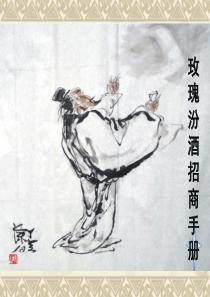 玫瑰汾酒招商手册